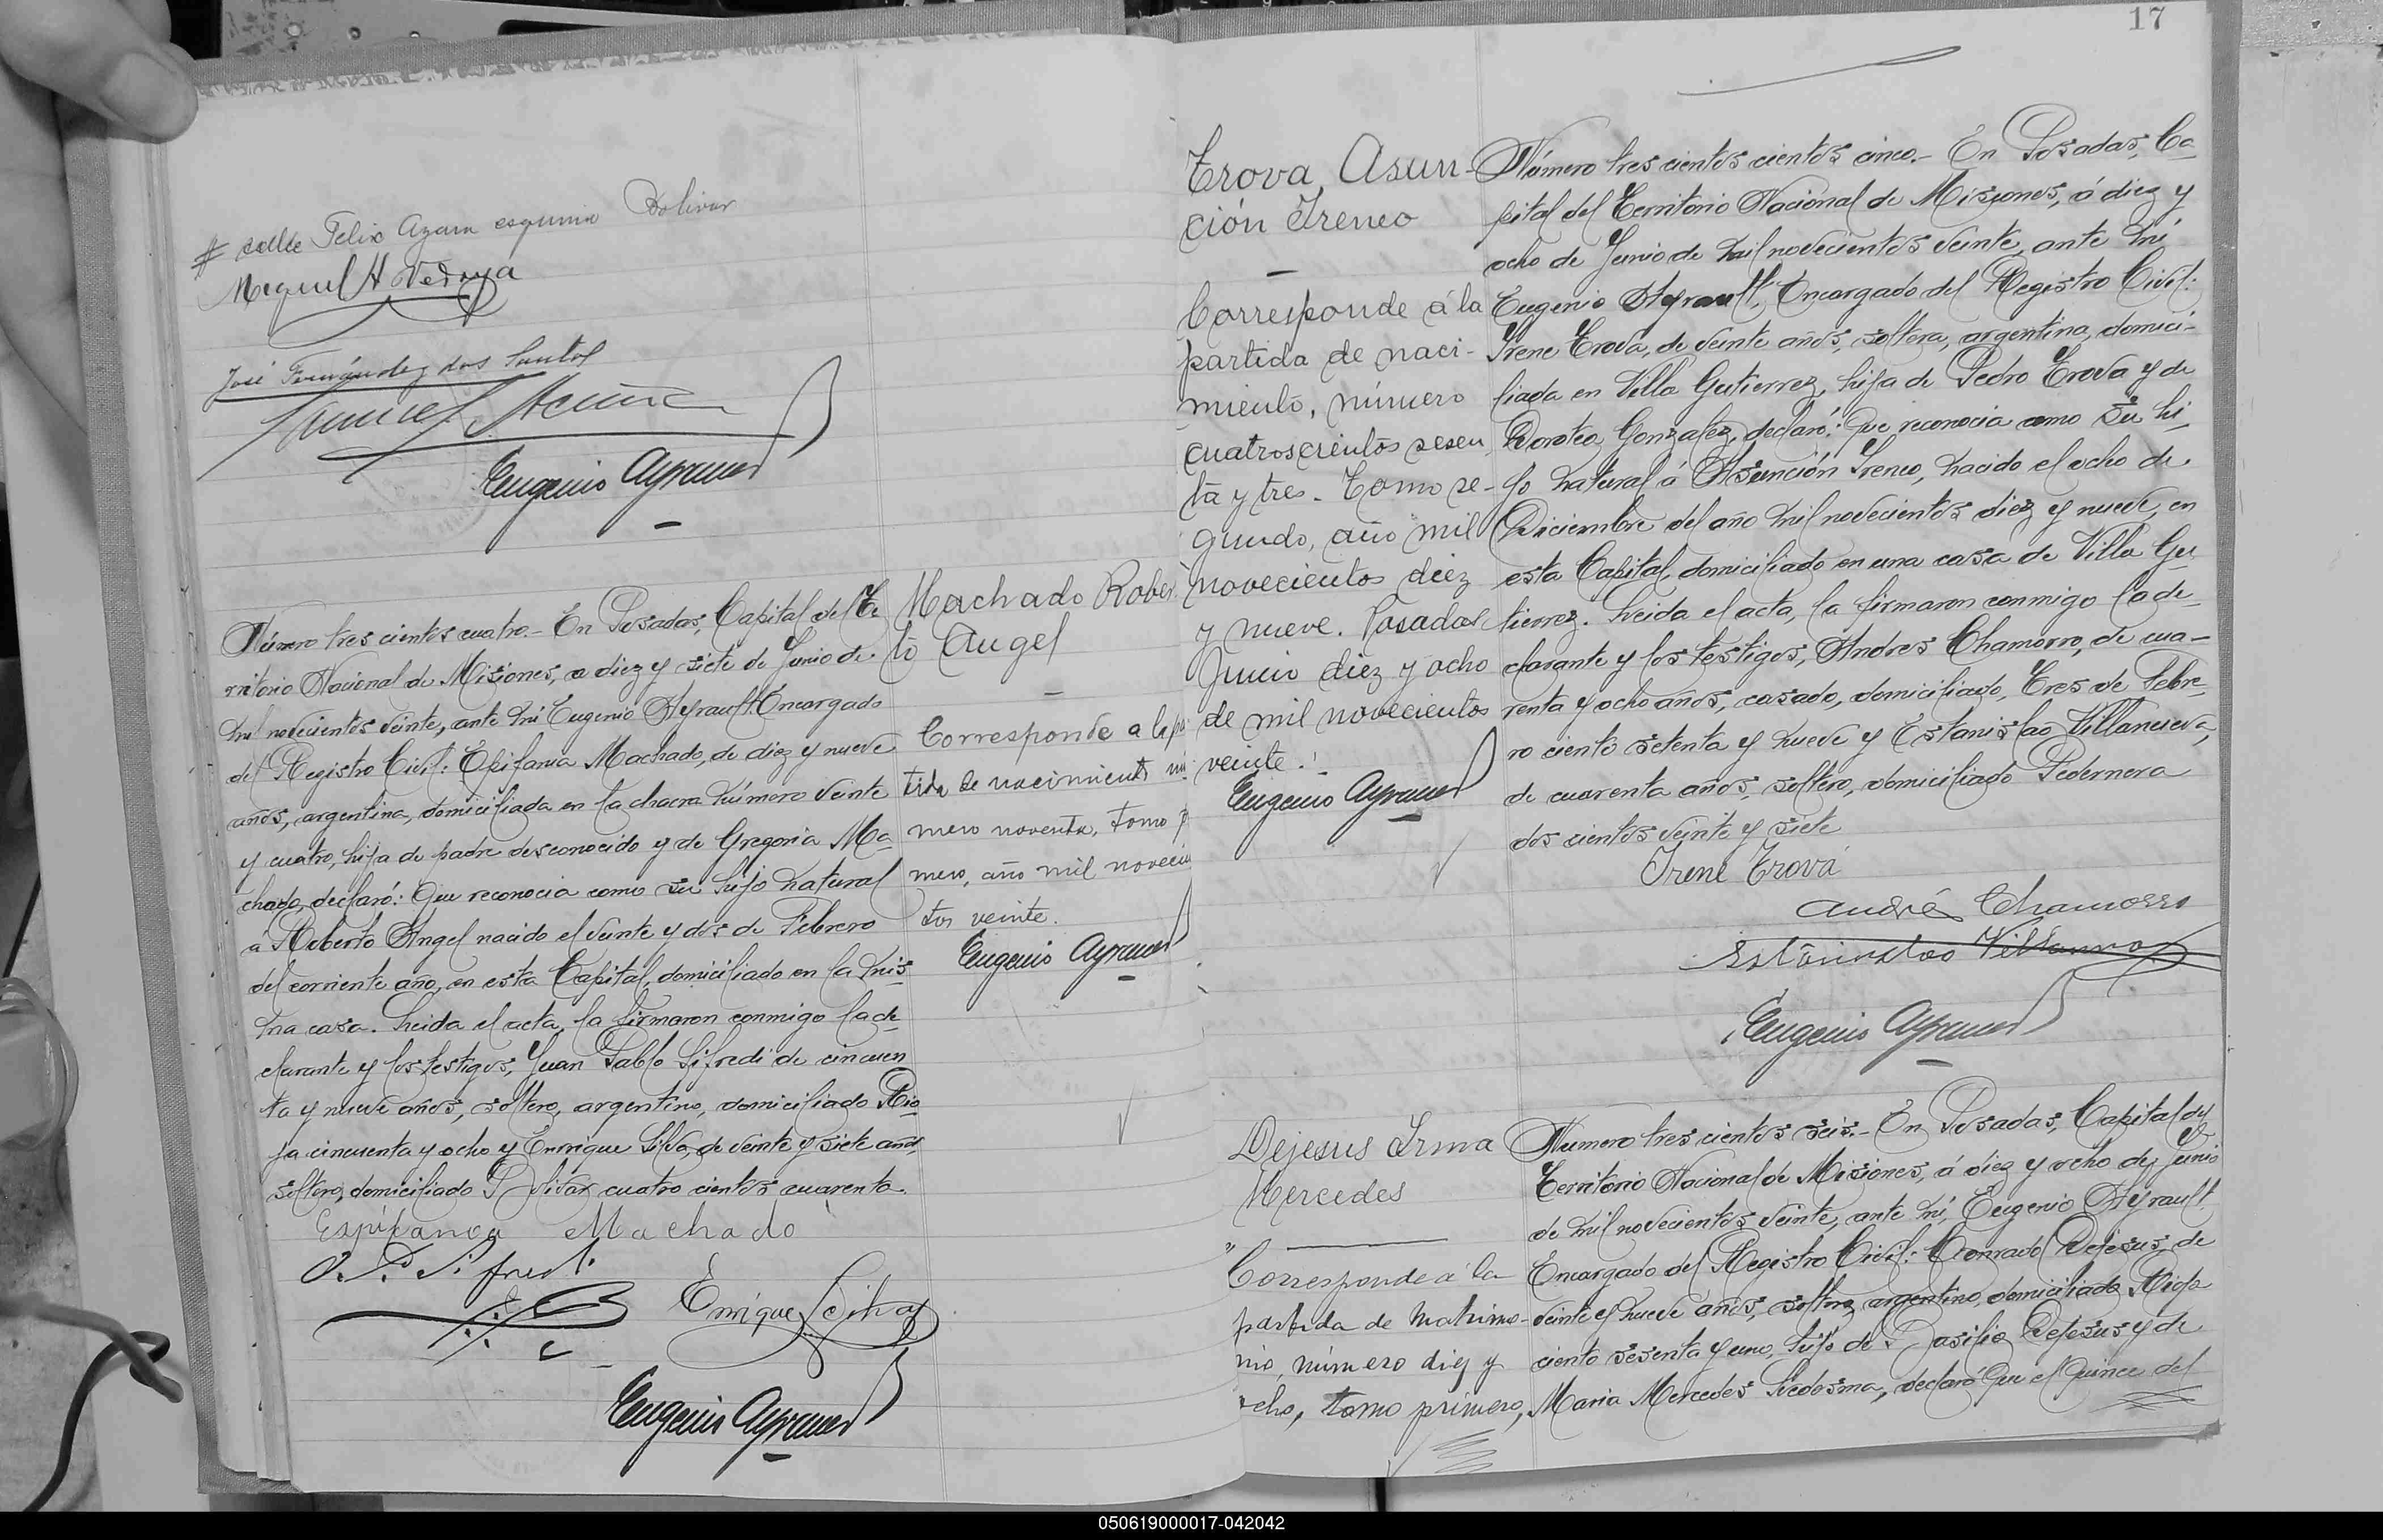 calle Felix Azara esquina Bolivar
Miguel H Vedoya
José Fernández dos Santos
Eugenio Ayrault
Número tres cientos cuatro.- En Posadas, Capital del Te
rritorio Nacional de Misiones, a diez y siete de Junio de
mil novecientos veinte, ante mi Eugenio Ayrault Encargado
del Registro Civil: Epifania Machado, de diez y nueve
años, argentina, domiciliada en la chacra número veinte
y cuatro, hija de padre desconocido y de Gregoria Ma
chado, declaró: Que reconocia como su hijo natural
á Roberto Angel nacido el veinte y dos de Febrero
del corriente año, en esta Capital, domiciliado en la mis
ma casa. Leida el acta, la firmaron conmigo la de
clarante y los testigos, Juan Pablo Sifredi de cincuen
ta y nueve años, soltero, argentino, domiciliado Rio
ja cincuenta y ocho y Enrique Silva, de veinte y siete años,
soltero, domiciliado Bolivar cuatro cientos cuarenta.
Machado
Enrique Seilva
Eugenio Ayrault
Machado Rober
to Angel
Corresponde a la par
tida de nacimiento nú
mero noventa, tomo
mero, año mil novecien
tos veinte.
Eugenio Ayrault
17
Trova, Asun-
ción Ireneo
Corresponde á la
partida de naci-
miento, número
cuatroscientos sesen
ta y tres. Tomo se-
gundo, año mil
novecientos diez
y nueve. Posadas
Junio diez y ocho
de mil novecientos
veinte.
Eugenio Ayrault
Número tres cientos cientos cinco.- En Posadas, Ca
pital del Territorio Nacional de Misiones, á diez y
ocho de Junio de mil novecientos veinte, ante mi,
Eugenio Ayrault, Encargado del Registro Civil:
Irene Trova, de veinte años, soltera, argentina, domici-
liada en Villa Gutierrez, hija de Pedro Trova y de
Dorotea Gonzalez, declaró: Que reconocia como su hi
jo natural á Asunción Ireneo, nacido el ocho de
Diciembre del año mil novecientos diez y nueve, en
esta Capital, domiciliado en una casa de Villa Gu
tierrez. Leida el acta, la firmaron conmigo la de
clarante y los testigos, Andres Chamorro, de cua-
renta y ocho años, casado, domiciliado, Tres de Febre
ro ciento setenta y nueve y Estanislao Villanueva,
de cuarenta años, soltero, domiciliado Pedernera
dos cientos veinte y siete
Irene Trova
Andrés Chamorro
Eugenio Ayrault
Dejesus Irma
Mercedes
Corresponde á la
partida de matrimo-
nio, número diez y
ocho, tomo primero,
Numero tres cientos seis.- En Posadas, Capital del
Territorio Nacional de Misiones, á diez y ocho de Junio
de mil novecientos veinte, ante mi, Eugenio Ayrault,
Encargado del Registro Civil: Conrado Dejesus, de
veinte y nueve años, soltero, argentino, domiciliado Rioja
ciento sesenta y uno, hijo de Basilio Dejesus y de
Maria Mercedes Ledesma, declaró Que el quince del
050619000017-042042